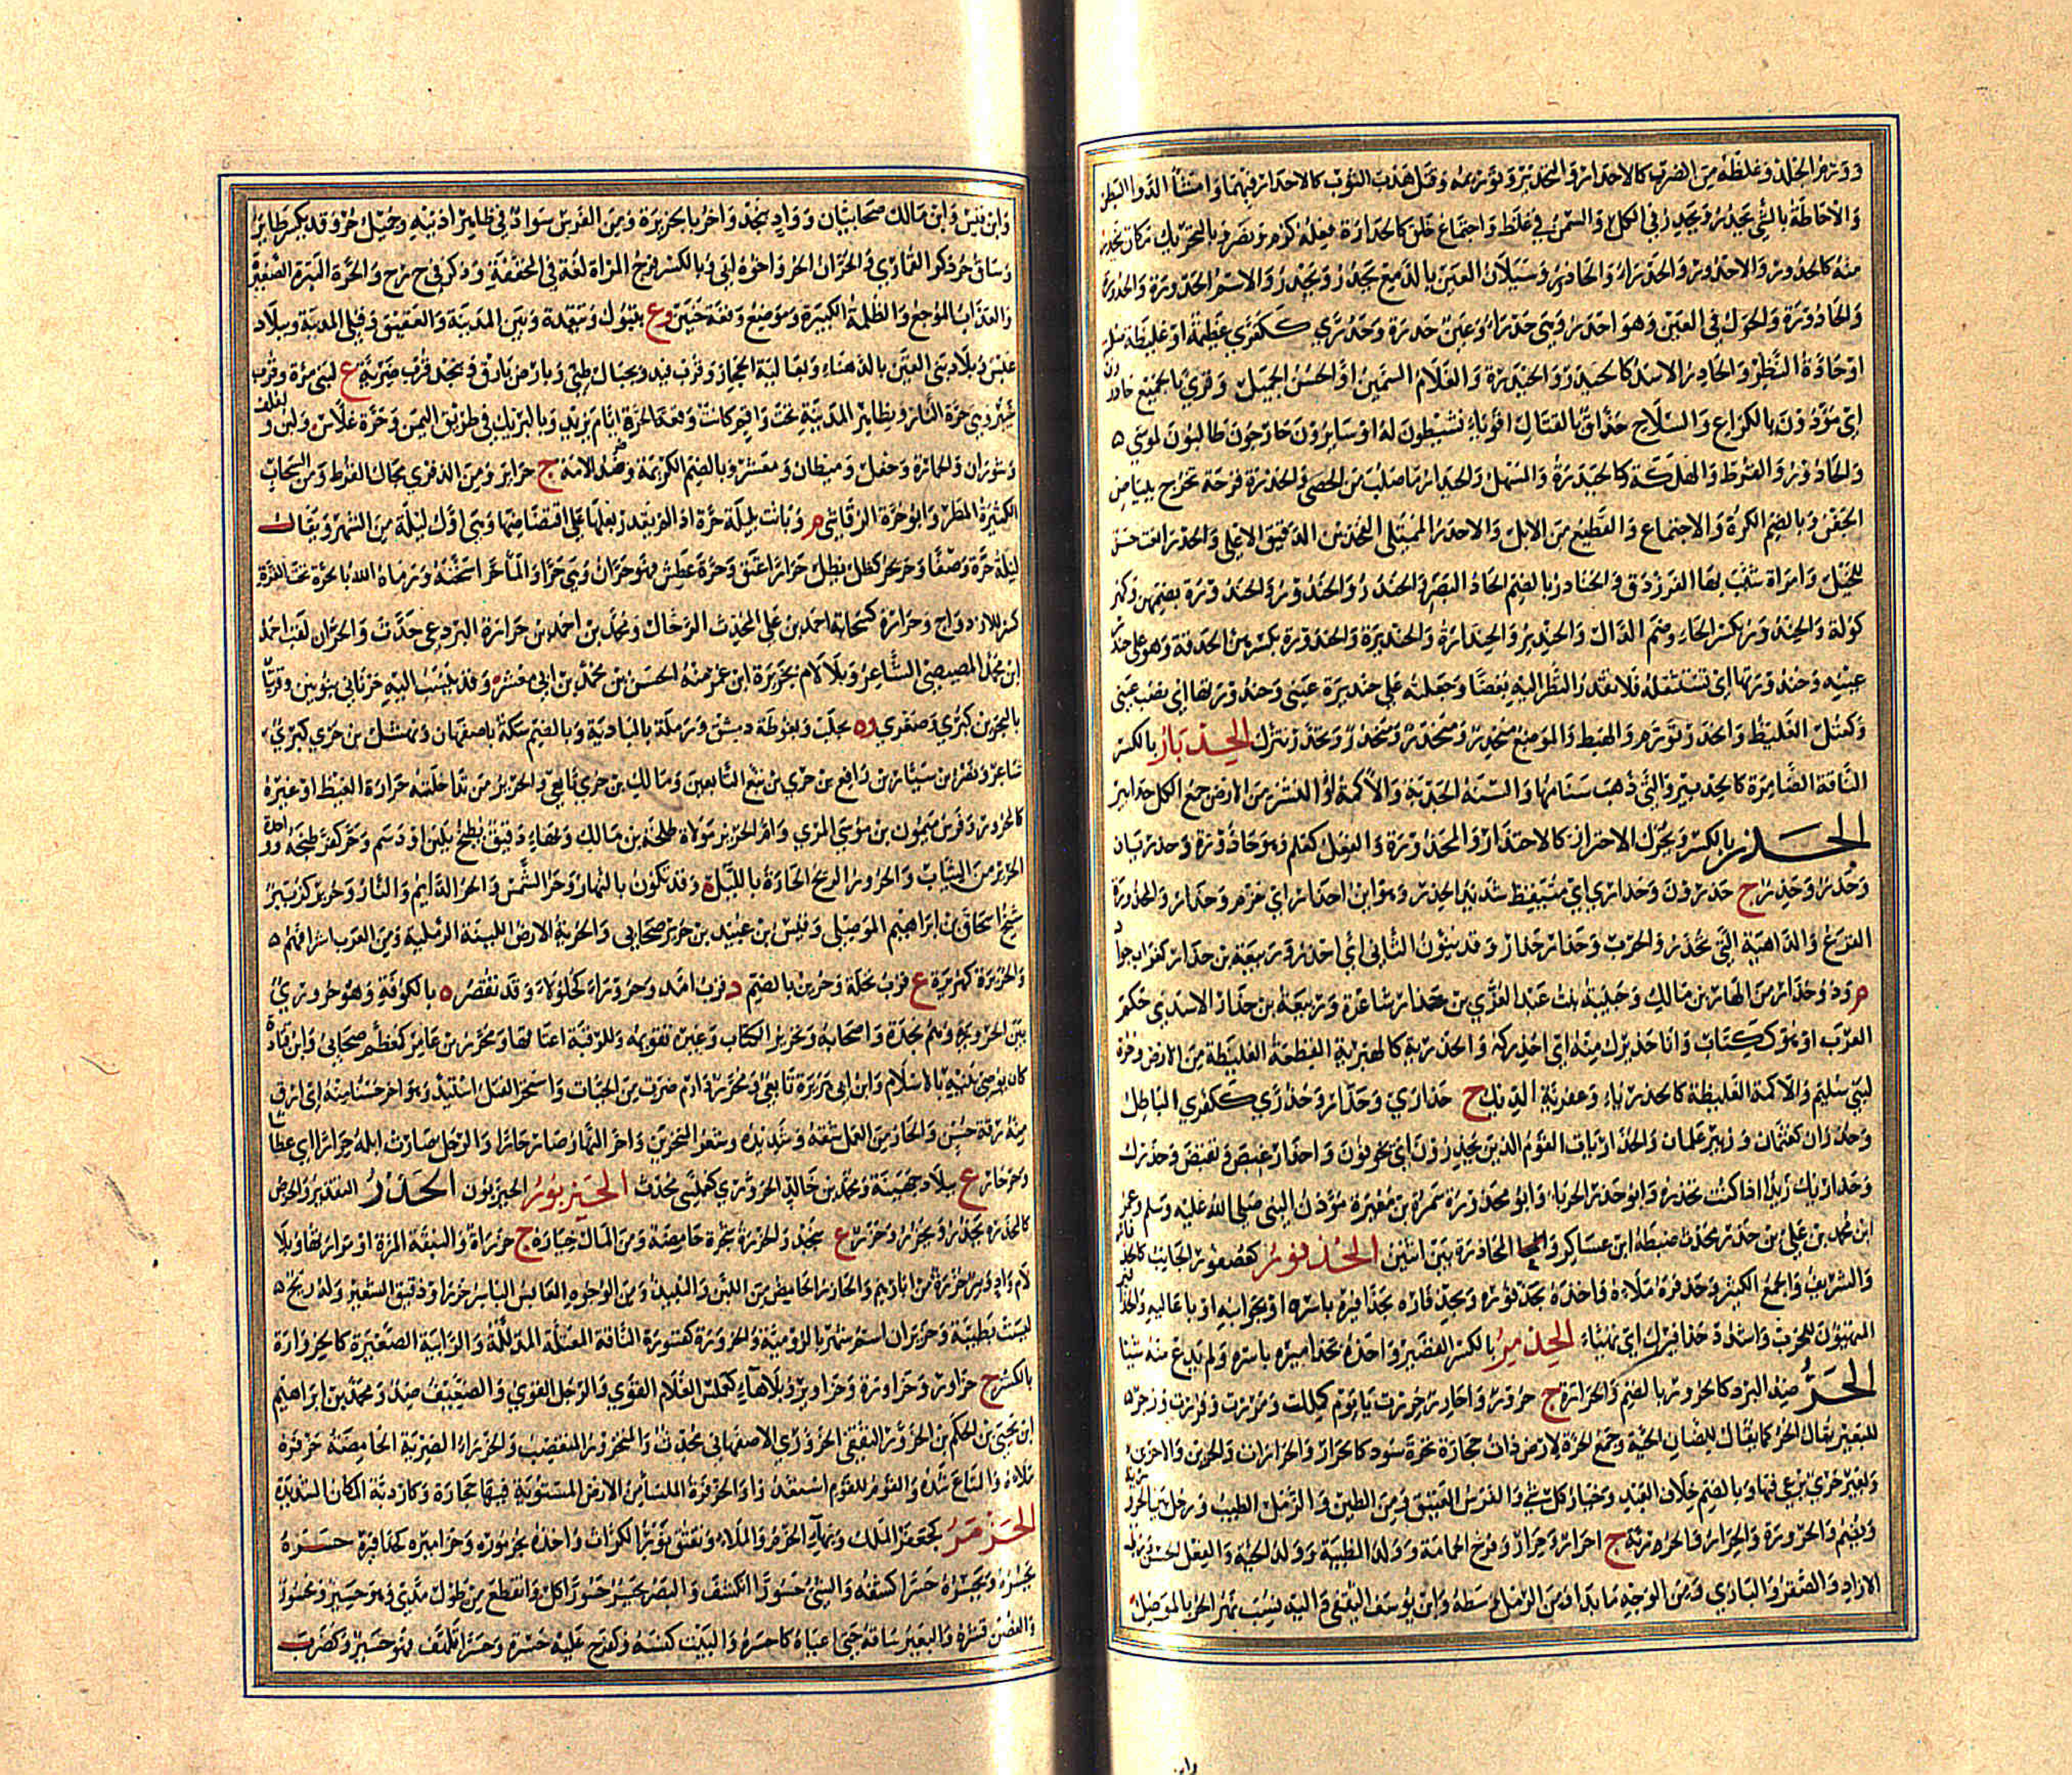 وورم الجلد وغلظه من الضرب كالاحدار والتحدير وتوريمه وفتل هدب الثوب كالاحدار فيهما وامشاء الدواء البطن
والاحاطة بالشئ يحدر ويحدر في الكل والسمن في غلظ واجتماع خلق كالحدارة فعله كرم ونصر وبالتحريك مكان ينحدر
منه كالحدور والاحدور والحدراء والحادور وسيلان العين بالدمع يحدر ويحدر والاسم الحدورة والحدورة
والحادورة والحول في العين وهو احدر وهي حدراء وعين حدرة وحدرى ككفرى عظيمة او غليظة صلبة
او حادة النظر والحادر الاسد كالحيدر والحيدرة والغلام السمين او الحسن الجميل وقرئ بالجميع حادرون
اي مؤدون بالكراع والسلاح حذاق بالقتال اقوياء نشيطون له او سايرون خارجون طالبون لموسى
والحادور القرط والهلكة كالحيدرة والسهل والحيدار ما صلب من الحصى والحدرة قرحة تخرج ببياض
الجفن وبالضم الكثرة والاجتماع والقطيع من الابل والاحدر الممتلي الفخذين الدقيق الاعلى واحدر نعت حسن
للخيل وامراة شبب بها الفرزدق والحنادر بالضم الحاد البصر والحندر والحندور والحندورة بضمهن وكهر
كولة والحندورة بكسر الحاء وضم الدال والحندير والحندارة والحنديرة والحندورة بكسرهن الحدقة وهو على حندر
عينه وحندورتها اي تستثقله فلا تقدر النظر اليه بغضا وجعلته على حنديرة عيني وحندورتها اي نصب عيني
وكعتل الغليظ وانحدر تورم وانهبط والموضع منحدر ومنحدر ومنحدر وتحدر تنزل الحدبار بالكسر
الناقة الضامرة كالحدبير والتي ذهب سنامها والسنة الجدبة والاكمة او النشز من الارض جمع الكل حدابير
الحذر بالكسر ويحرك الاحتراز كالاحتذار والمحذورة والفعل كعلم وهو حاذورة وحذريان
وحذر وحذر ج حذرون وحذارى اي متيقظ شديد الحذر وهو ابن احذار اي حزم وحذر والمحذورة
الفزع والداهية التي تحذر والحرب وحذار حذار وقد ينون الثاني اي احذر وربيعة بن حذار كغراب جواد
م وذو حذار من الهان بن مالك وحبيبة بنت عبد العزى بن حذار شاعرة وربيعة بن حذار الاسدي حكم
العرب او هو ككتاب وانا حذيرك منه اي احذركه والحذرية كالهبرية القطعة الغليظة من الارض وحرة
لبني سليم والاكمة الغليظة كالحذرياء وعفرية الديك ج حذارى وحذار وحذرى ككفرى الباطل
وحذران كعثمان وزبير علمان والحذاريات القوم الذين يحذرون اي يخوفون واحذار غضب وتقبض وحذرك
وحذاريك زيدا اذا كنت تحذره وابو حذر الحرباء وابو محذورة سمرة بن معيرة مؤذن النبي صلى الله عليه وسلم وعمر
ابن محمد بن علي بن حذر محدث ضبطه ابن عساكر والمحاذرة بين اثنين الحذفور كعصفور الجانب كالحذفار
والشريف والجمع الكثير وحذفره ملأه واخذه بحذفوره وبحذفاره بحذافيره باسره او بجوانبه او باعاليه والحذافير
المتهيئون للحرب واشدد حذافيرك اي تهياء الحذمر بالكسر القصير واخذه بحذاميره باسره ولم يدع منه شيئا
الحر ضد البرد كالحرور بالضم والحرارة ج حرور واحارر حررت يا يوم كمللت وفررت ومررت وزجر
للبعير يقال الحر كما يقال للضان الحية وجمع الحرة لارض ذات حجارة نخرة سود كالحرار والحرات والحرين والاحرين
وبعير حري يرعى فيها وبالضم خلاف العبد وخيار كل شئ والفرس العتيق ومن الطين والرمل الطيب ورجل بين الحرورية
ويضم والحرورة والحرار والحرية ج احرار وحرار وفرخ الحمامة وولد الظبية وولد الحية والفعل الحسن ورطب
الازاد والصقر والبازي ومن الوجه ما بدا ومن الرمل وسطه وابن يوسف الثقفي واليه ينسب نهر الحر بالموصل
وابن قيس وابن مالك صحابيان وواد بنجد واخر بالجزيرة ومن الفرس سواد في ظاهر اذنيه وجميل حر وقد يكسر طاير
وساق حر ذكر القماري والحران الحر واخوه ابي وبالكسر فرج المراة لغة في المخففة وذكر في ح ر ح والحرة البثرة الصغيرة
والعذاب الموجع والظلمة الكثيرة وموضع وقعة حنين و ع بتبوك وبنقدة وبين المدينة والعقيق وقبلي المدينة وببلاد
عبس وببلاد بني القين بالدهناء وبعالية الحجاز وقرب فيد وبجبال طيئ وبارض بارق وبنجد قرب ضرية ع لبني مرة وقرب
خيبر وهي حرة النار وبظاهر المدينة تحت واقم وبها كانت وقعة الحرة ايام يزيد وبالبريك في طريق اليمن وحرة غلاس ولبن ولفلف
وشوران والحمارة وحفل وميطان ومعشر وبالضم الكريمة وضد الامة ج حراير ومن الذفرى مجال القرط ومن السحاب
الكثيرة المطر وابو حرة الرقاشي م وباتت بليلة حرة اذا لم يقدر بعلها على افتضاضها وهي اول ليلة من الشهر ويقال
ليلة حرة وصفا وحر يحر كظل يظل حرارا عتق وحرة عطش فهو حران وهي حرى والماء حرا اسخنه ورماه الله بالحرة تحت القرة
كسر للازدواج وحرارة كسحابة احمد بن علي المحدث الرحال ومحمد بن احمد بن حرارة البردعي حدث والحران لقب احمد
ابن محمد المصيصي الشاعر وبلا لام بجزيرة ابن عمر منه الحسن بن محمد بن ابي معشر وقد ينسب اليه حرناني بنونين وقريتا
بالبحرين كبرى وصغرى و ه بحلب وبغوطة دمشق ورملة بالبادية وبالضم سكة باصفهان ونهشل بن حري كبري
شاعر ونصر بن سيار بن رافع بن حري من تبع التابعين ومالك بن حري تابعي والحرير من تداخلته حرارة الغيظ او غيره
كالمحرور وفرس ميمون بن موسى المري وام الحرير مولاة طلحة بن مالك وبهاء دقيق يطبخ بلبن او دسم وحر كفر طبخه وواحدة
الحرير من الثياب والحرور الريح الحارة بالليل وقد تكون بالنهار وحر الشمس والحر الدايم والنار وحرير كزبير
شيخ اسحاق بن ابراهيم الموصلي وقيس بن عبيد بن حرير صحابي والحرية الارض اللينة الرملية ومن العرب اشرافهم
والحريرة كهريرة ع قرب نخلة وحرين بالضم د قرب امد وحروراء كجلولاء وقد تقصر ه بالكوفة وهو حروري
بين الحرورية وهم نجدة واصحابه وتحرير الكتاب وغيره تقويمه وللرقبة اعتاقها ومحرر بن عامر كمعظم صحابي وابن قتادة
كان يوصي بنيه بالاسلام وابن ابي هريرة تابعي ومحرر دارم ضرب من الحيات واستحر القتل اشتد وهو احر حسنا منه اي ارق
منه رقة حسن والحار من العمل شاقه وشديده وشعر المنخرين واحر النهار صار حارا والرجل صارت ابله حرارا اي عطاشا
وحرحار ع ببلاد جهينة ومحمد بن خالد الحروري كعملسي محدث الحيزبور الحيزبون الحزر التقدير والخرص
كالمحزرة يحزر ويحزر وحزر ع بنجد والحزرة شجرة حامضة ومن المال خياره ج حزرات والنبقة المرة او مرارتها وبلا
لام واد وبير حزرة من ابارهم والحازر الحامض من اللبن والنبيذ ومن الوجوه العابس الباسر حزر او دقيق الشعير وله ريح
ليست بطيبة وحزيران اسم شهر بالرومية والحزورة كقسورة الناقة المقتلة المذللة والرابية الصغيرة كالحزوارة
بالكسر ج حزاور وحزاورة وحزاوير وبلا هاء كعملس الغلام القوي والرجل القوي والضعيف ضد ومحمد بن ابراهيم
ابن يحيى بن الحكم بن الحزور الثقفي الحزوري الاصفهاني محدث والمحزور المتغضب والحزراء الضربة الحامضة حزفره
ملاه والمتاع شده والقوم للقوم استعدوا والحزفرة الملساء من الارض المستوية فيها حجارة وكاردبة المكان الشديد
الحزمر كجعفر الملك وبهاء الحزم والملاء وتفتق نور الكراث واخذه بحزموره وحزاميره كحذافيره حسره
يحسره ويحسره حسرا كشفه والشئ حسورا انكشف والبصر يحسر حسورا كل وانقطع من طول مدى وهو حسير ومحسور
والغصن قشره والبعير ساقه حتى اعياه كاحسره والبيت كنسه وكفرح عليه حسرة وحسرا تلهف فهو حسير وكضرب
واين